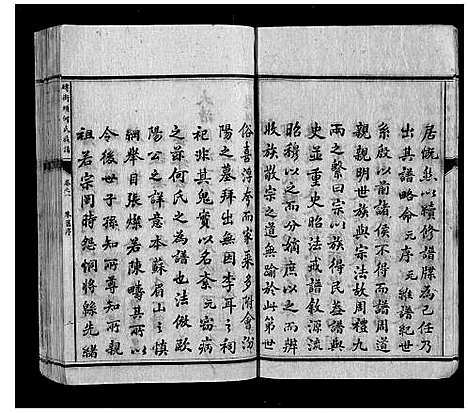 居慨然以續修譜牒為己任乃
出其譜略命元序元維譜紀世
系啟以前諸侯不得而譜周道
親親明世族與宗法故周禮九
兩之繫曰宗以族得民蓋譜與
史並重史昭法戒譜敘源流
昭穆以之而分嫡庶以之而辨
收族敬宗之道無踰於此第世
俗喜浮夸而家乘多附會汾
陽之墓拜出無因李耳之祠
祀非其鬼實以名紊元竊病
之茲何氏之為譜也法倣歐
陽公之詳意本蘇眉山之慎
綱舉目張燦若陳疇其所以
令後世子孫知所尊知所親
祖若宗闓時怨恫將緜先緒
何氏族譜
卷之一